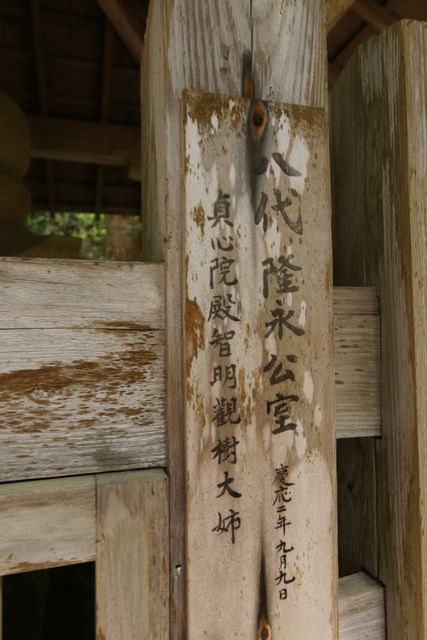 八代 隆永公室
慶応二年九月九日
貞心院殿智明觀樹大姉